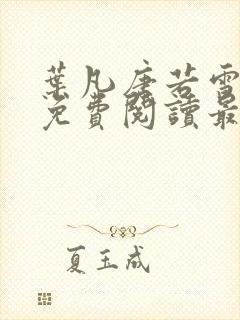 葉凡唐若雪
免費閱讀最
夏玉成